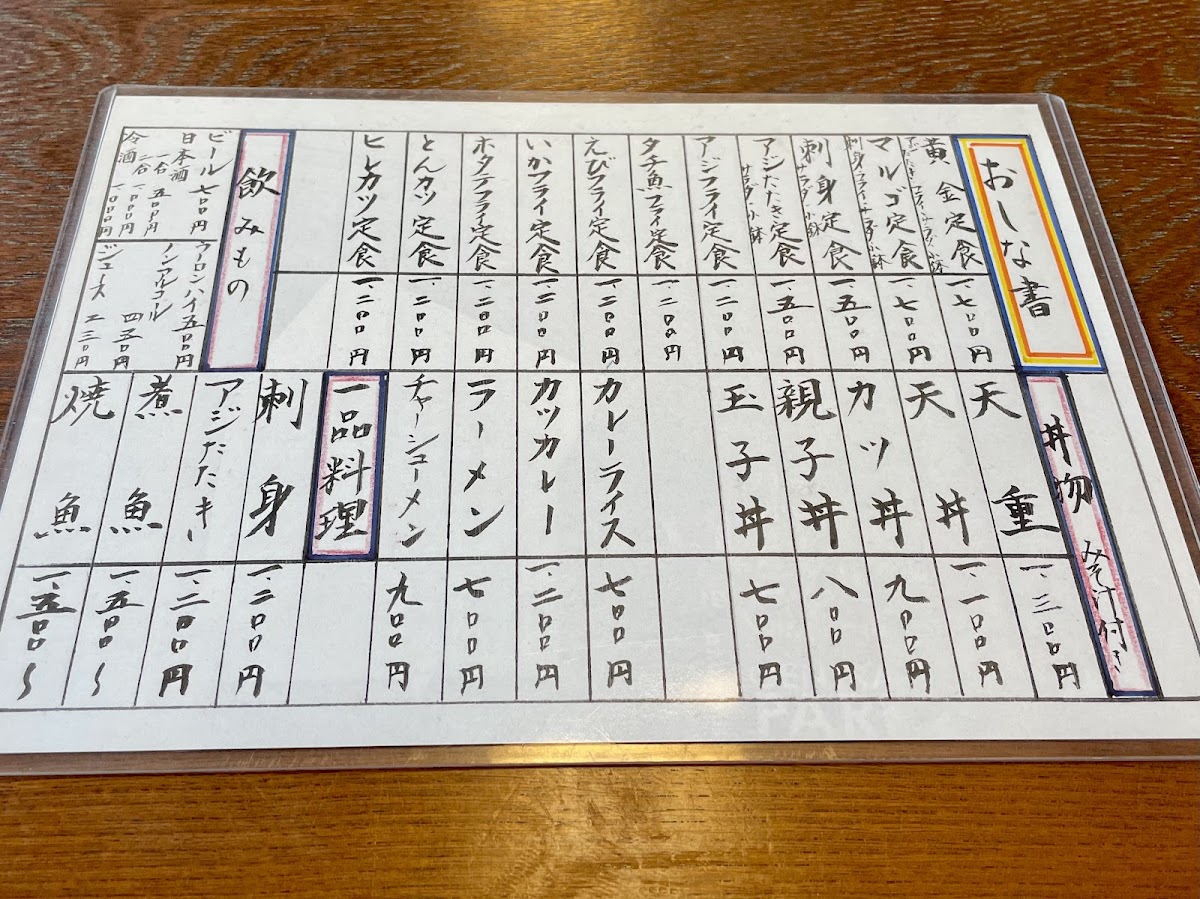 おしな書
黄金定食
一、七〇〇円
マルゴ定食
一、七〇〇円
刺身定食
サラダ・小鉢
一、五〇〇円
アジたたき定食
サラダ・小鉢
一、五〇〇円
アジフライ定食
一、二〇〇円
タチ魚フライ定食
一、二〇〇円
えびフライ定食
一、二〇〇円
いかフライ定食
一、二〇〇円
ホタテフライ定食
一、二〇〇円
とんカツ定食
一、二〇〇円
ヒレカツ定食
一、二〇〇円
飲みもの
ビール 七〇〇円
日本酒 一合 五〇〇円
二合 一、〇〇〇円
冷酒 一、〇〇〇円
ウーロンハイ 五〇〇円
ノンアルコール 四五〇円
ジュース 二三〇円
丼物 みそ汁付き
天重
一、三〇〇円
天丼
一、一〇〇円
カツ丼
九〇〇円
親子丼
八〇〇円
玉子丼
七〇〇円
カレーライス
七〇〇円
カツカレー
一、二〇〇円
ラーメン
七〇〇円
チャーシューメン
九〇〇円
一品料理
刺身
一、二〇〇円
アジたたき
一、二〇〇円
煮魚
一、五〇〇～
焼魚
一、五〇〇～